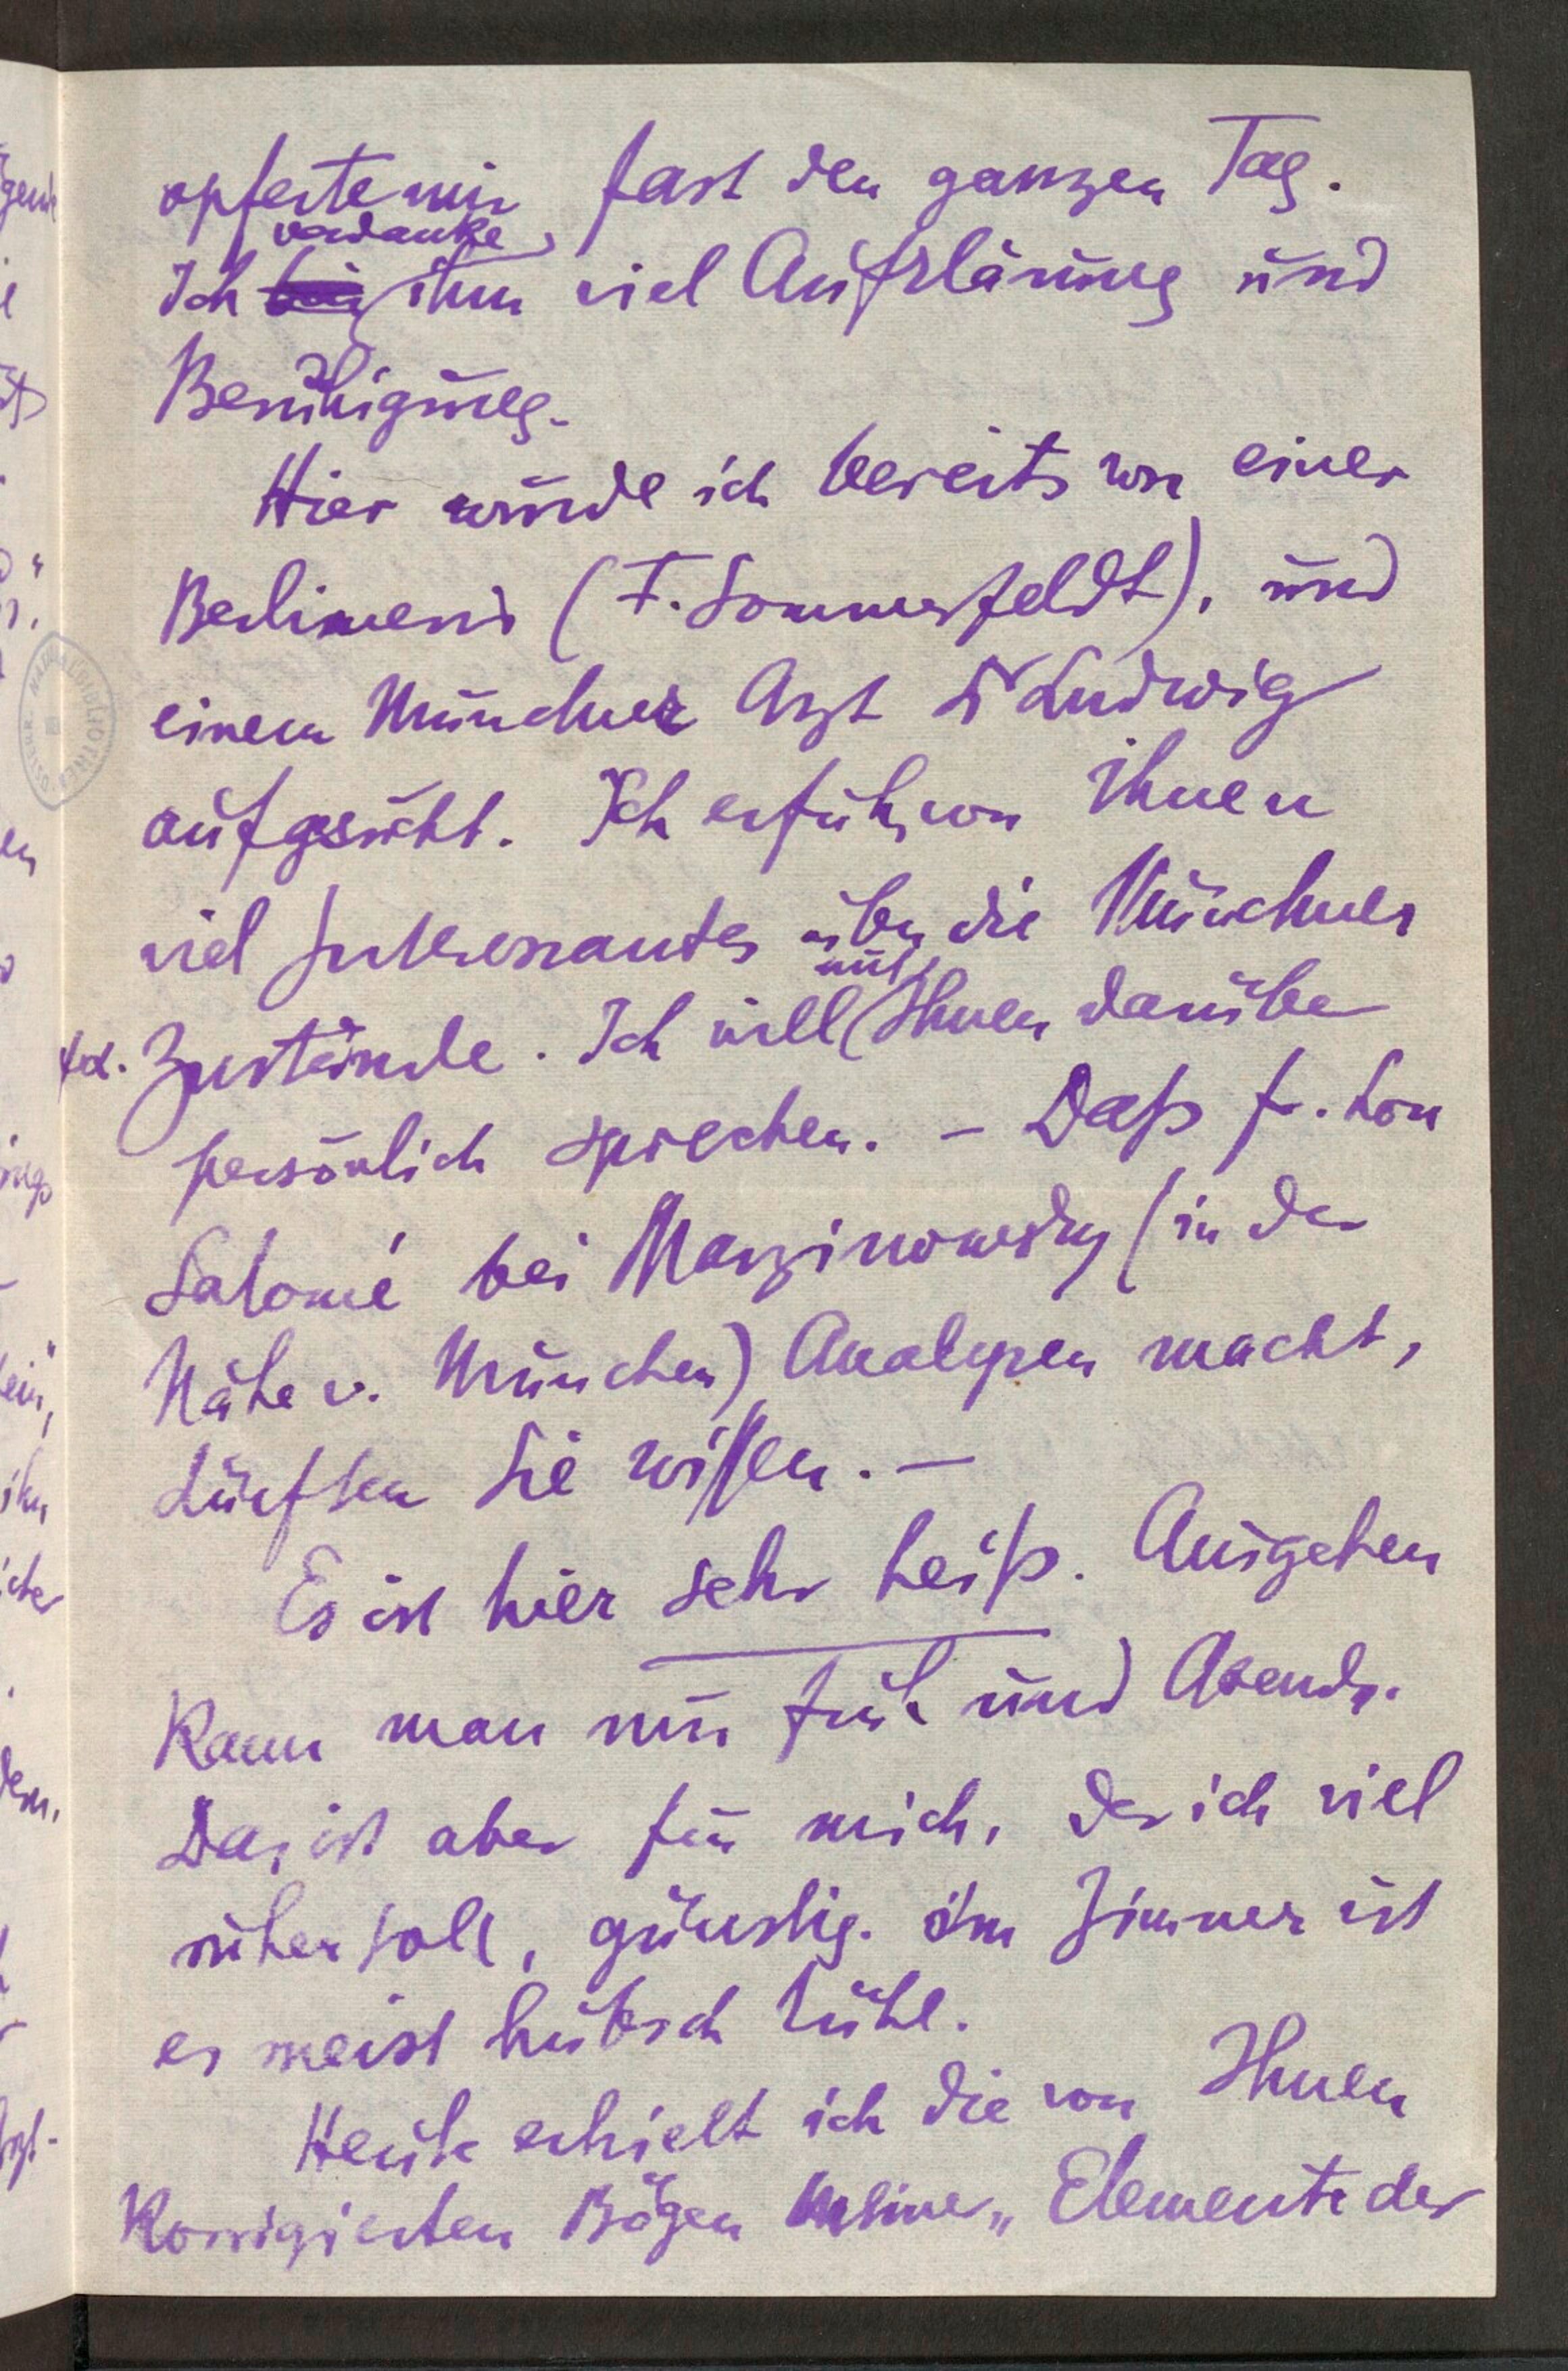 opferte mir fast den ganzen Tag.
verdanke
Ich bin ihm viel Aufklärung und
Beruhigung.
Hier wurde ich bereits von einer
Berlinerin (F. Sommerfeldt), und
einem Münchner Arzt Dr Ludwig
aufgesucht. Ich erfuhr von ihnen
viel Interessantes über die Münchner
mit
Zustände. Ich will Ihnen darüber
persönlich sprechen. – Daß Fr. Lou
Salomé bei Marzinowsky (in der
Nähe v. München) Analysen macht,
dürften Sie wissen. –
Es ist hier sehr heiß. Ausgehen
kann man nur früh und Abends.
Das ist aber für mich, der ich viel
ruhen soll, günstig. Im Zimmer ist
es meist hübsch kühl.
Heute erhielt ich die von Ihnen
korrigierten Bögen meiner „Elemente der